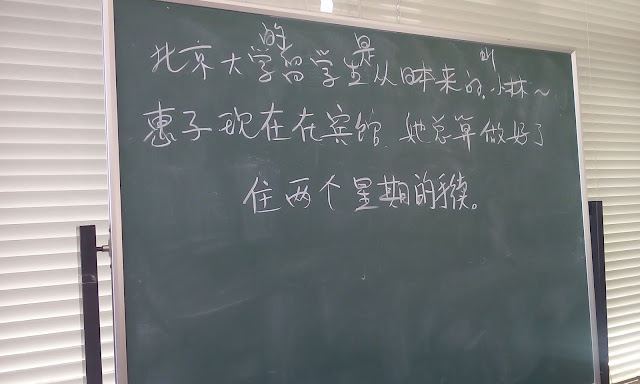 的 是
北京大学留学生从日本来的.小林~
惠子现在在宾馆 她总算做好了
住两个星期的手续。